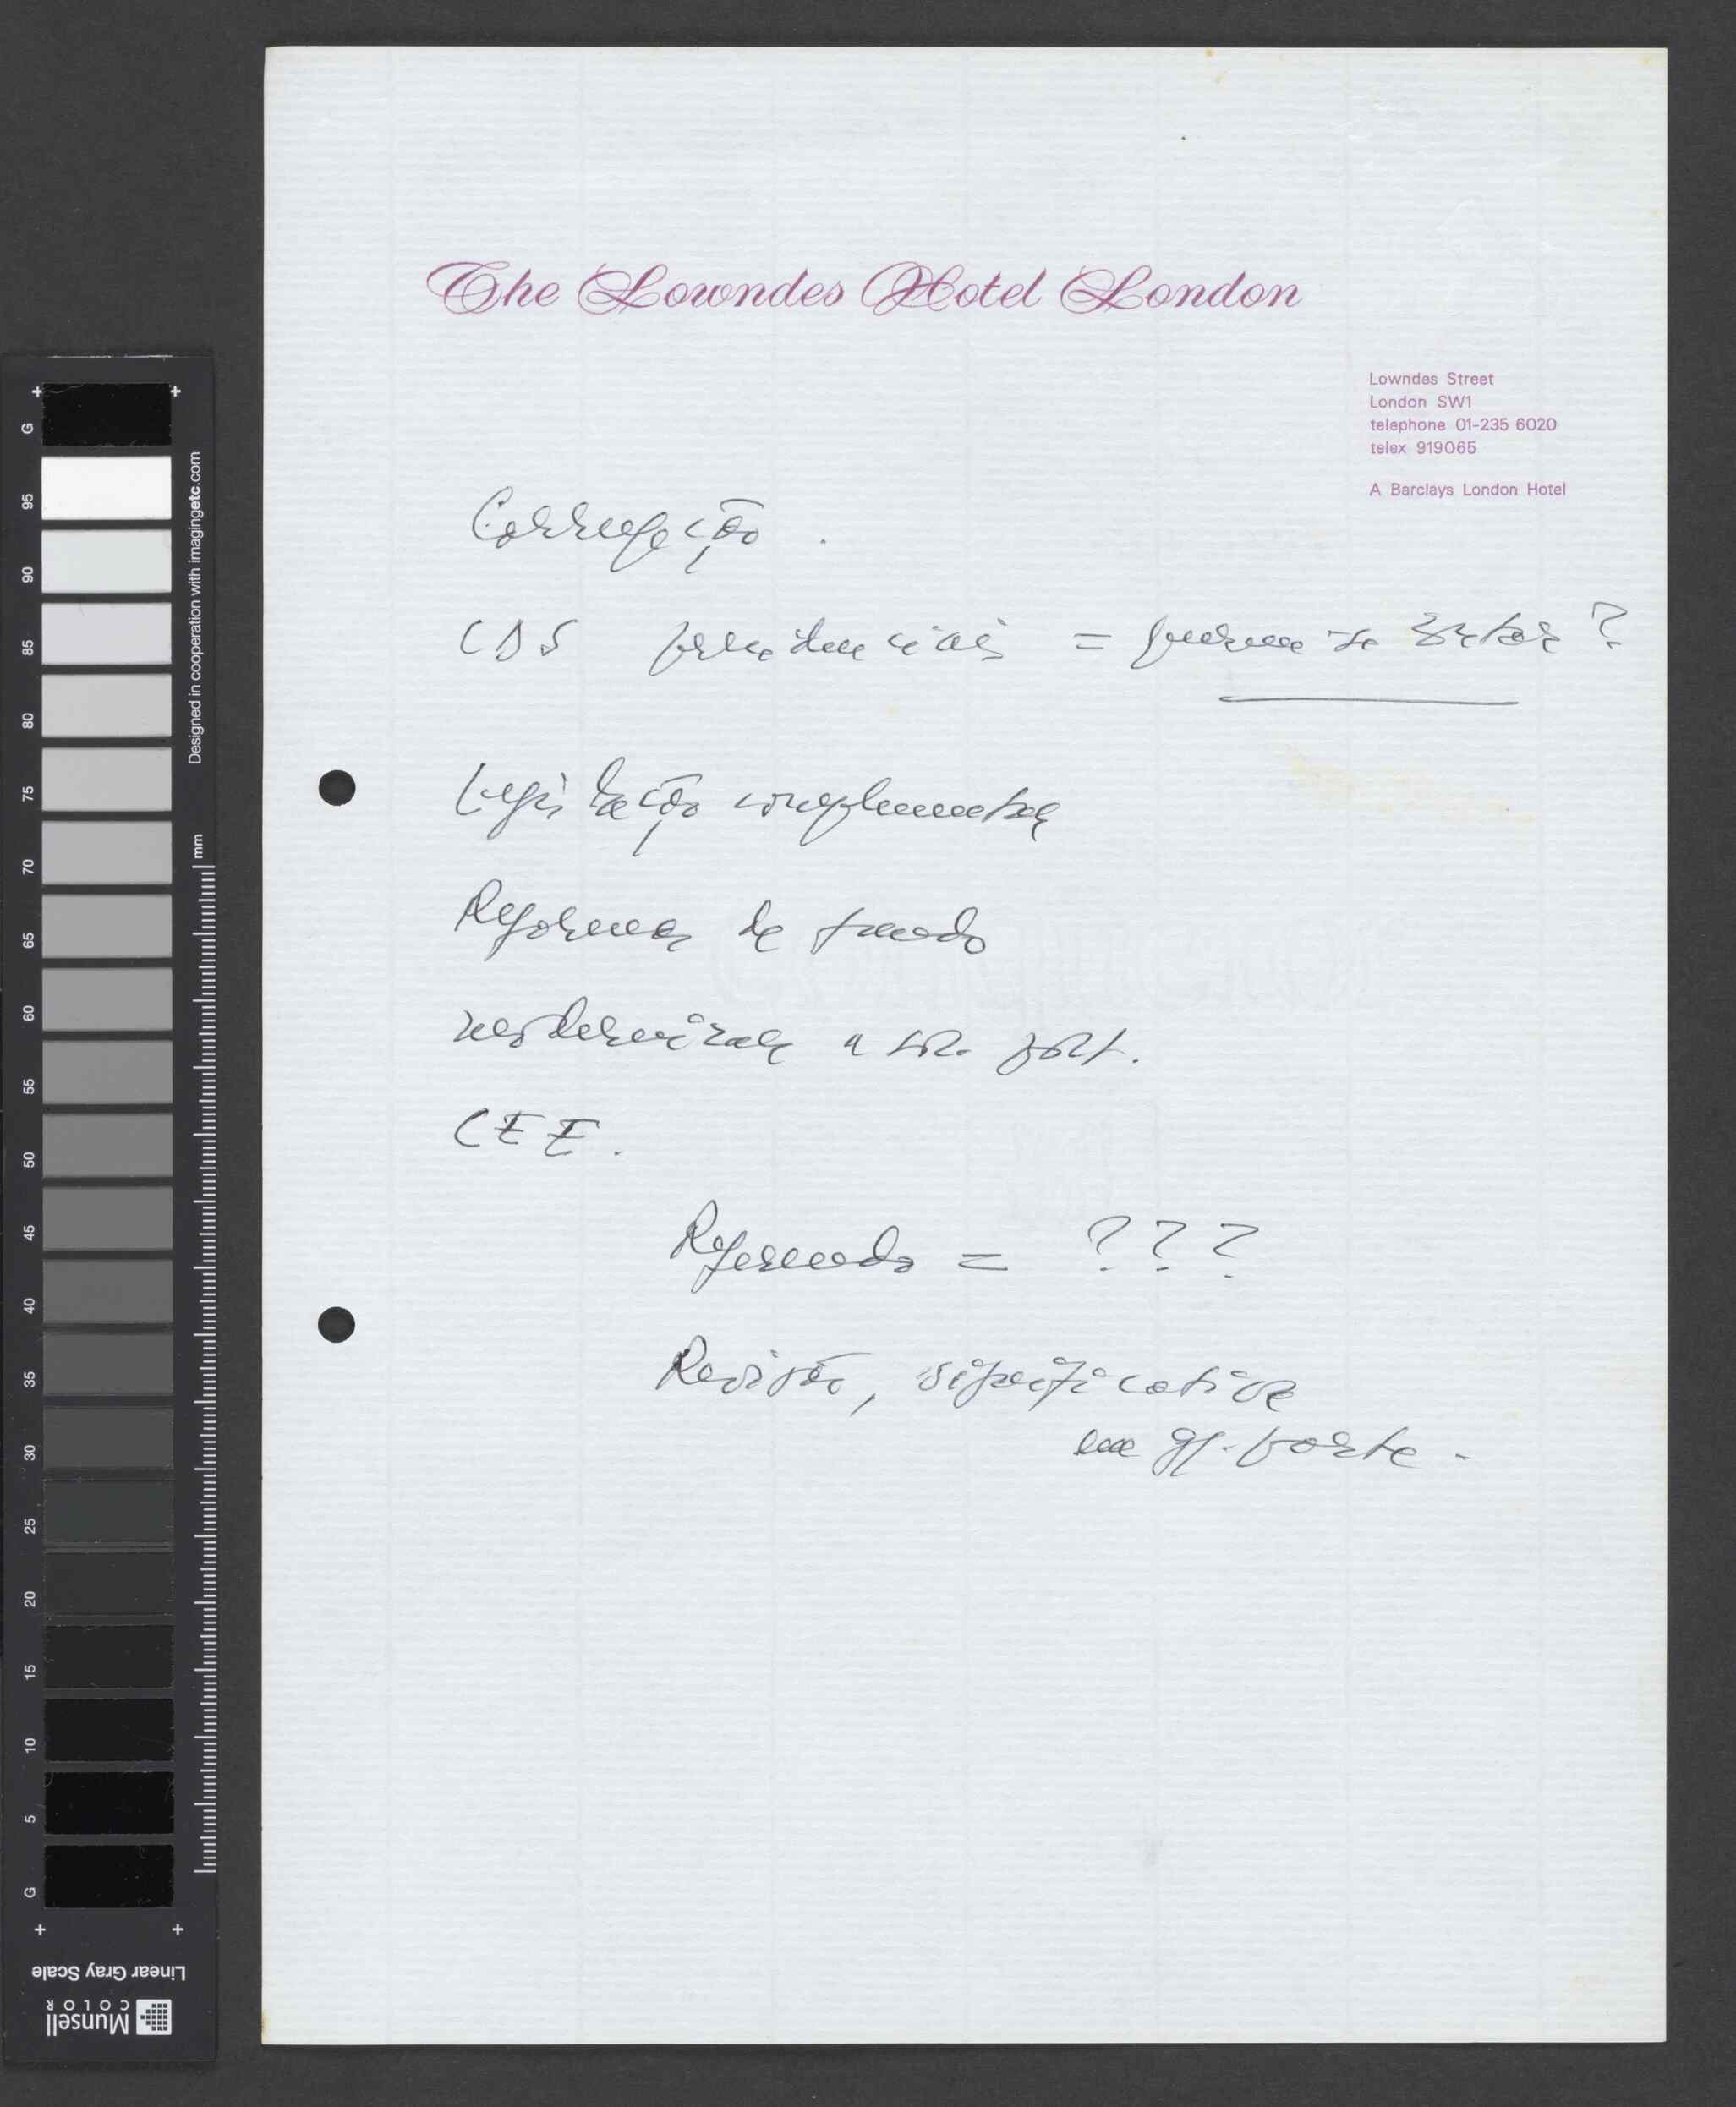 The Lowndes Hotel London
Lowndes Street
London SW1
telephone 01-235 6020
telex 919065
A Barclays London Hotel
Corrupção.
CDS presidenciais = ?
Legislação complementar
Reformas de fundo
modernizar a soc. port.
CEE.
Referendo = ???
Revisão, significativa
em gr. parte.
G
95
90
85
80
75
70
65
60
55
50
45
40
35
30
25
20
15
10
5
G
Designed in cooperation with imagingetc.com
mm
Linear Gray Scale
Munsell
COLOR